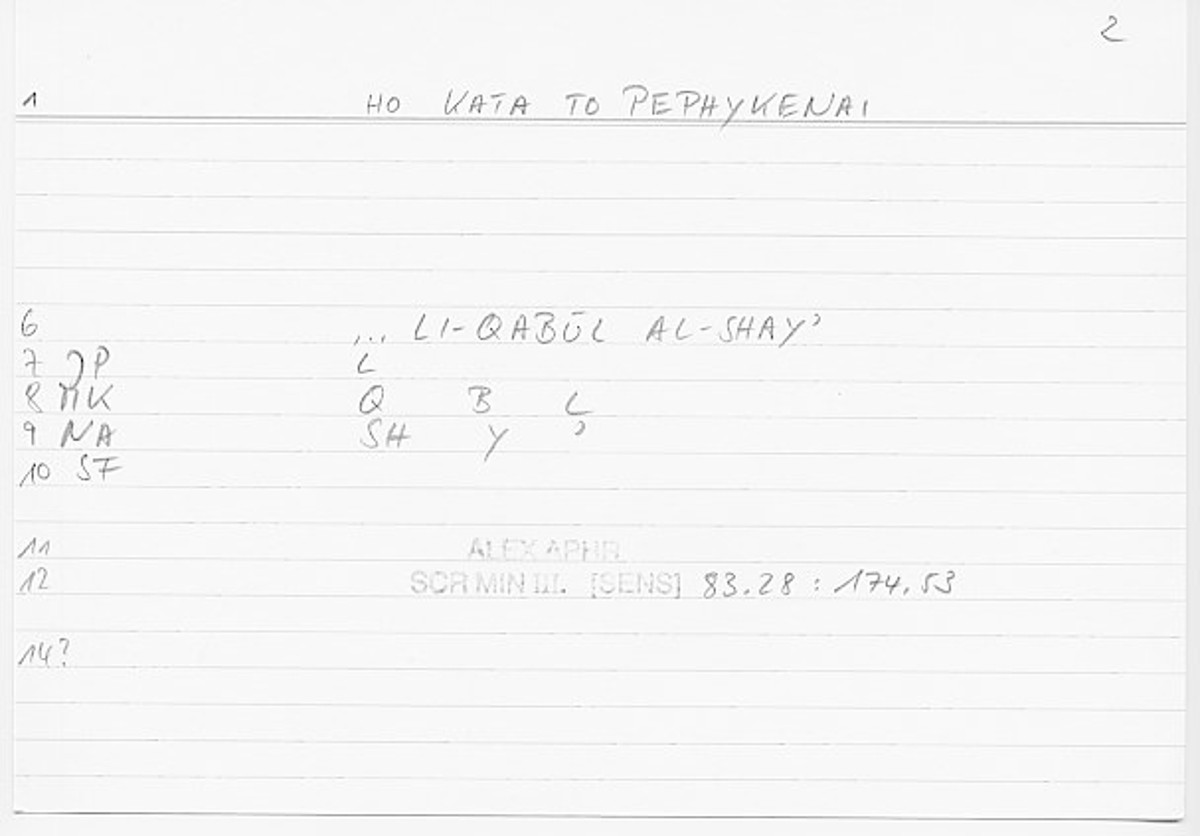 2
1 HO KATA TO PEPHYKENAI
6 ... LI-QABŪL AL-SHAY'
7 JP L
8 MK Q B L
9 NA SH Y '
10 SF
11 ALEX APHR.
12 SCR MIN III. [SENS] 83.28 : 174.53
14?